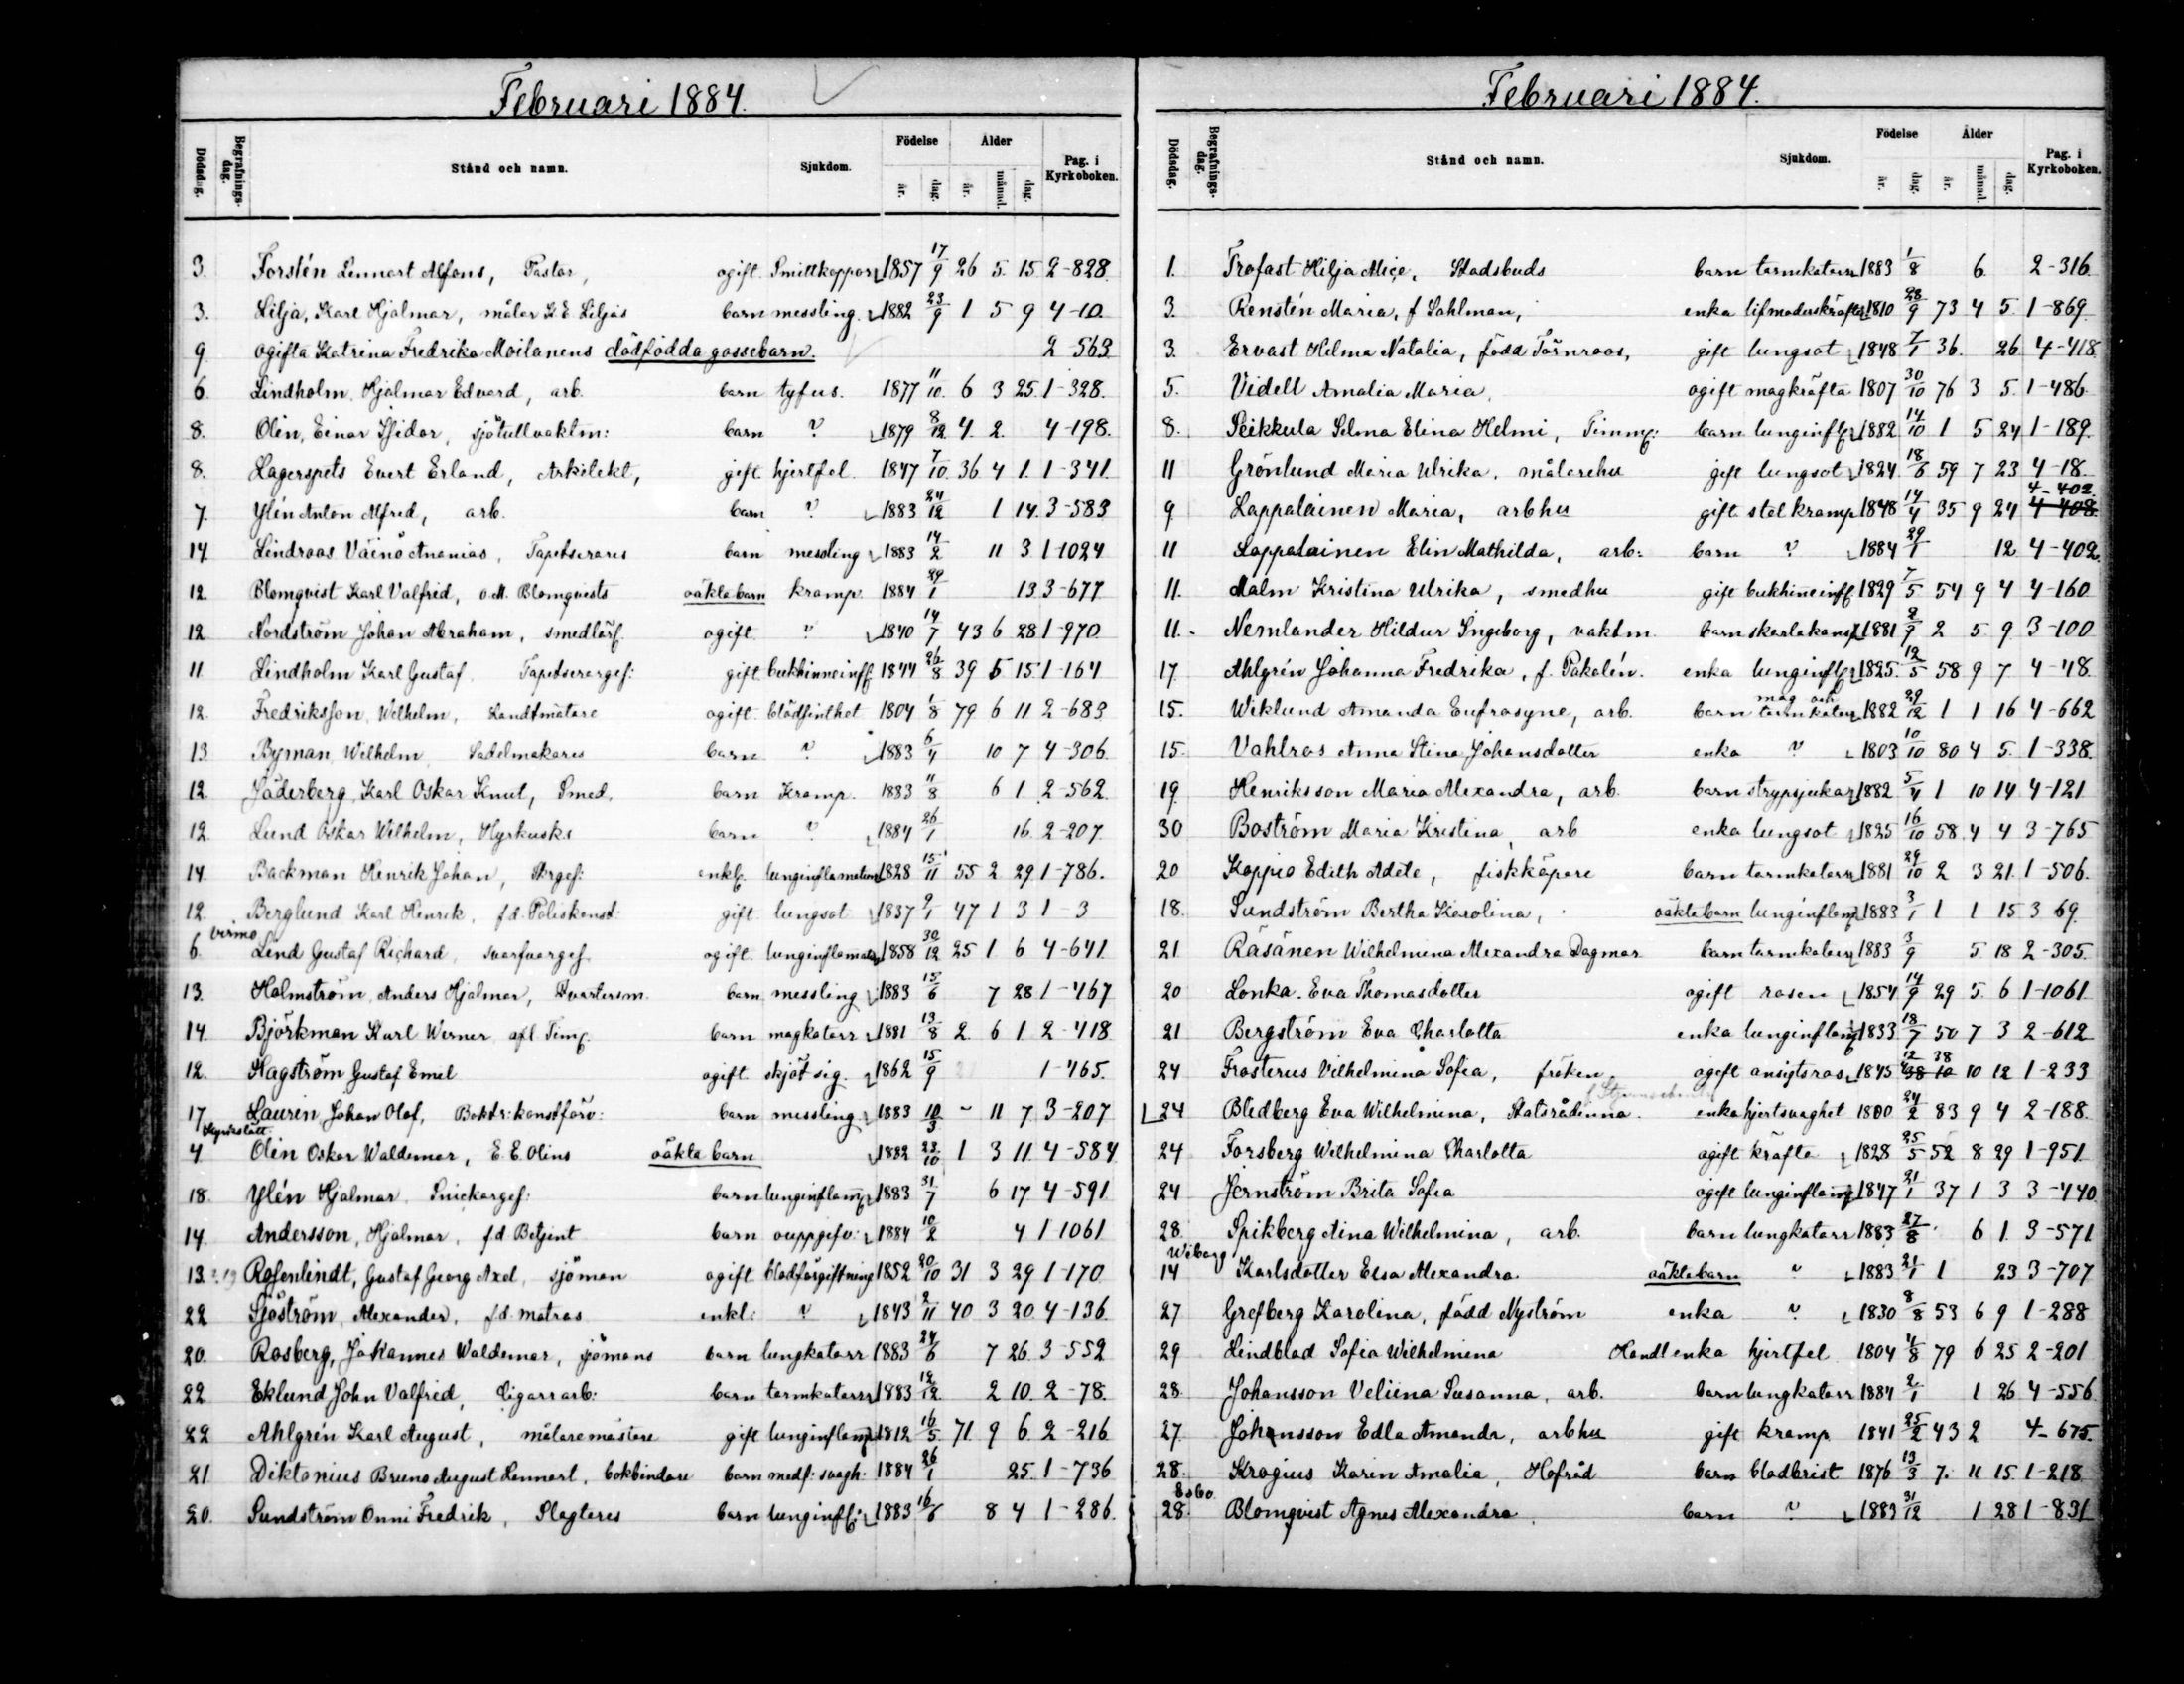 Februari 1884.
Dödsdag. Begrafnings-dag. Stånd och namn. Sjukdom. Födelse år. dag. Ålder år. månad. dag. Pag. i Kyrkoboken.
3. Forstén Lennart Alfons, Pastor, ogift Smittkoppor 1857 17/9 26 5. 15 2-828
3. Lilja, Karl Hjalmar, målar K E Liljas barn messling 1882 23/9 1 5 9 4-10
9 ogifta Katrina Fredrika Moilanens dödfödda gossebarn. 2 563
6 Lindholm, Hjalmar Edvard, arb. barn tyfus. 1877 11/10 6 3 25 1-328.
8. Olin, Einar Isidor, sjötullvaktm: barn " 1879 8/12 4. 2. 4-198.
8. Lagerspets Evert Erland, Arkitekt, gift hjertfel 1847 7/10 36 4 1. 1-341.
7. Ylén Anton Alfred, arb. barn " 1883 24/12 1 14. 3-583
14 Lindroos Väinö Ananias, Tapetserares barn messling 1883 14/2 11 3 1-1024
12 Blomqvist Karl Valfrid, o.M. Blomqvists oäkta barn kramp 1884 29/1 13 3-677
12 Nordström Johan Abraham, smedlärl ogift " 1840 14/7 43 6 28 1-970
11 Lindholm Karl Gustaf Tapetserargef: gift bukhinneinfl 1844 26/8 39 5 15 1-164
12. Fredriksson, Wilhelm, Landtmätare ogift blödsinthet 1804 1/8 79 6 11 2-683
13 Byman, Wilhelm Sadelmakares barn " 1883 6/4 10 7 4-306
12. Jäderberg, Karl Oskar Knut, Smed. barn Kramp. 1883 11/8 6 1 2-562
12 Lund Oskar Wilhelm, Hyrkusks barn " 1884 26/1 16. 2-207
14. Backman Henrik Johan, enkl. lunginflamation 1828 15/11 55 2 29 1-786.
12. Berglund Karl Henrik, fd. Poliskonst: gift lungsot 1837 9/1 47 1 3 1-3
Virmo
6. Lind Gustaf Richard, svarfvargef. ogift lunginflamation 1858 30/12 25 1 6 4-641
13. Holmström, Anders Hjalmar, Qvartersm. barn messling 1883 15/6 7 28 1-467
14. Björkman Karl Werner afl Timf. barn magkatarr 1881 13/8 2. 6 1 2-418
12. Hagström Gustaf Emel ogift skjöt sig. 1862 15/9 1-465.
17 Laurin, Johan Olof, Boktr:konstförv: barn messling 1883 10/3 - 11 7 3-207
Kyrkslätt
4 Olin Oskar Waldemar, E.E. Olins oäkta barn 1882 23/10 1 3 11 4-584
18. Ylén Hjalmar Snickargef: barn lunginflam 1883 31/7 6 17 4-591
14. Andersson, Hjalmar, fd. Betjent barn ouppgifv: 1884 10/2 4 1 1061
13. Rosenlindt, Gustaf Georg Axel, sjöman ogift blodförgiftning 1852 20/10 31 3 29 1-170
22 Sjöström, Alexander, fd. matros enkl: " 1843 2/11 40 3 20 4-136
20. Rosberg, Johannes Waldemar, sjömans barn lungkatarr 1883 24/6 7 26 3-552
22 Eklund John Valfrid, Cigarrarb: barn tarmkatarr 1883 12/12 2 10. 2-78.
22 Ahlgrén Karl August, målaremästare gift lunginflam 1812 16/5 71. 9 6. 2-216
21 Diktonius Bruno August Lennart, bokbindare barn medf: svagh: 1884 26/1 25. 1-736
20. Sundström Onni Fredrik, Slagteres barn lunginfl: 1883 16/6 8 4 1-286.
Februari 1884.
Dödsdag. Begrafnings-dag. Stånd och namn. Sjukdom. Födelse år. dag. Ålder år. månad. dag. Pag. i Kyrkoboken.
1. Trofast Hilja Alice, Stadsbuds barn tarmkatarr 1883 1/8 6 2-316
3. Renstén Maria, f Sahlman, enka lifmoderskräfta 1810 28/9 73 4 5. 1-869
3. Ervast Helma Natalia, född Törnroos, gift lungsot 1848 7/1 36. 26 4-418
5. Videll Amalia Maria, ogift magkräfta 1807 30/10 76 3 5. 1-486
8. Peikkula Selma Elina Helmi, Timmf: barn lunginfl 1882 14/10 1 5 24 1-189
11 Grönlund Maria Ulrika, målarehu gift lungsot 1824 18/6 59 7 23 4-18
4-402.
9 Lappalainen Maria, arbhu gift stelkramp 1848 14/4 35 9 24 4-408
11 Lappalainen Elin Mathilda, arb: barn " 1884 29/1 12 4-402.
11. Malm Kristina Ulrika, smedhu gift bukhinneinfl 1829 7/5 54 9 4 4-160
11. Nemlander Hildur Ingeborg, vaktm barn skarlakansf 1881 2/9 2 5 9 3-100
17 Ahlgrén Johanna Fredrika, f. Pakalén. enka lunginfl 1825. 12/5 58 9 7 4-48
mag och
15. Wiklund Amanda Eufrosyne, arb. barn tarmkatarr 1882 29/12 1 1 16 4-662
15 Vahlros Anna Stina Johansdotter enka " 1803 10/10 80 4 5. 1-338.
19 Henriksson Maria Alexandra, arb. barn strypsjukan 1882 5/4 1 10 14 4-121
30 Boström Maria Kristina, arb enka lungsot 1825 16/10 58 4 4 3-765
20 Koppio Edith Adele, fiskköpare barn tarmkatarr 1881 29/10 2 3 21. 1-506.
18. Sundström Bertha Karolina, oäkta barn lunginflam 1883 3/1 1 1 15 3 69.
21 Räsänen Wilhelmina Alexandra Dagmar barn tarmkatarr 1883 3/9 5 18 2-305.
20 Lonka. Eva Thomasdotter ogift rosen 1854 14/9 29 5. 6 1-1061
21 Bergström Eva Charlotta enka lunginflam 1833 18/7 50 7 3 2-612
24 Frosterus Vilhelmina Sofia, fröken ogift ansigtsros 1845 12/4 38 10 10 12 1-233
24 Bledberg Eva Wilhelmina, Statsrådinna. enka hjertsvaghet 1800 24/2 83 9 4 2-188
24 Forsberg Wilhelmina Charlotta ogift kräfta 1828 25/5 52 8 29 1-951
24 Jernström Brita Sofia ogift lunginflam 1847 21/1 37 1 3 3-440
28. Spikberg Aina Wilhelmina, arb. barn lungkatarr 1883 27/8 6 1. 3-571
Wiborg
14 Karlsdotter Elsa Alexandra oäkta barn " 1883 21/1 1 23 3-707
27 Grefberg Karolina, född Nyström enka " 1830 8/8 53 6 9 1-288
29 Lindblad Sofia Wilhelmina Handl enka hjertfel 1804 4/8 79 6 25 2-201
28. Johansson Veliina Susanna, arb. barn lungkatarr 1884 2/1 1 26 4-556
27. Johansson Edla Amanda, arbhu gift kramp 1841 25/2 43 2 4-675.
28. Krogius Karin Amalia, Hofråd barn blodbrist 1876 13/3 7. 11 15. 1-218
Esbo
28. Blomqvist Agnes Alexandra barn " 1883 31/12 1 28 1-831